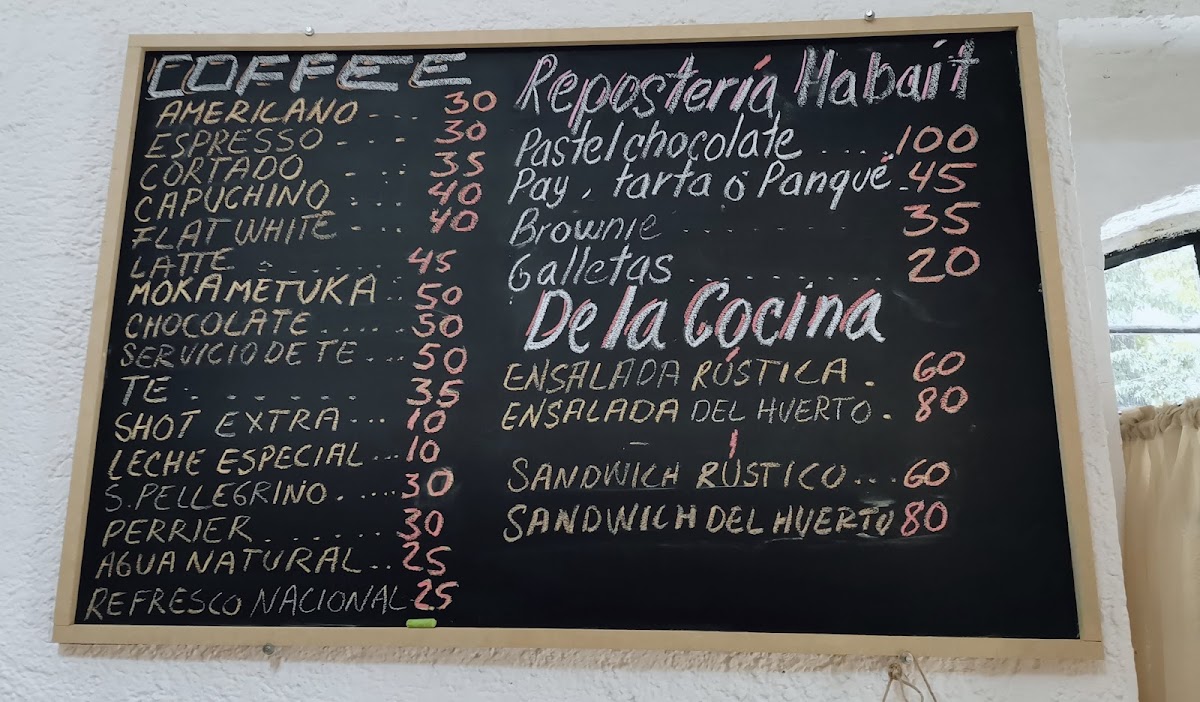 COFFEE
AMERICANO .... 30
ESPRESSO .... 30
CORTADO .... 35
CAPUCHINO ... 40
FLAT WHITE ... 40
LATTE ....... 45
MOKAMETUKA .. 50
CHOCOLATE ..... 50
SERVICIO DE TE ... 50
TE ....... 35
SHOT EXTRA .... 10
LECHE ESPECIAL ... 10
S. PELLEGRINO ..... 30
PERRIER ....... 30
AGUA NATURAL .. 25
REFRESCO NACIONAL 25
Repostería Habait
Pastel chocolate .... 100
Pay, tarta ó Panqué 45
Brownie ........ 35
Galletas ......... 20
De la Cocina
ENSALADA RÚSTICA . 60
ENSALADA DEL HUERTO . 80
SANDWICH RÚSTICO ... 60
SANDWICH DEL HUERTO 80